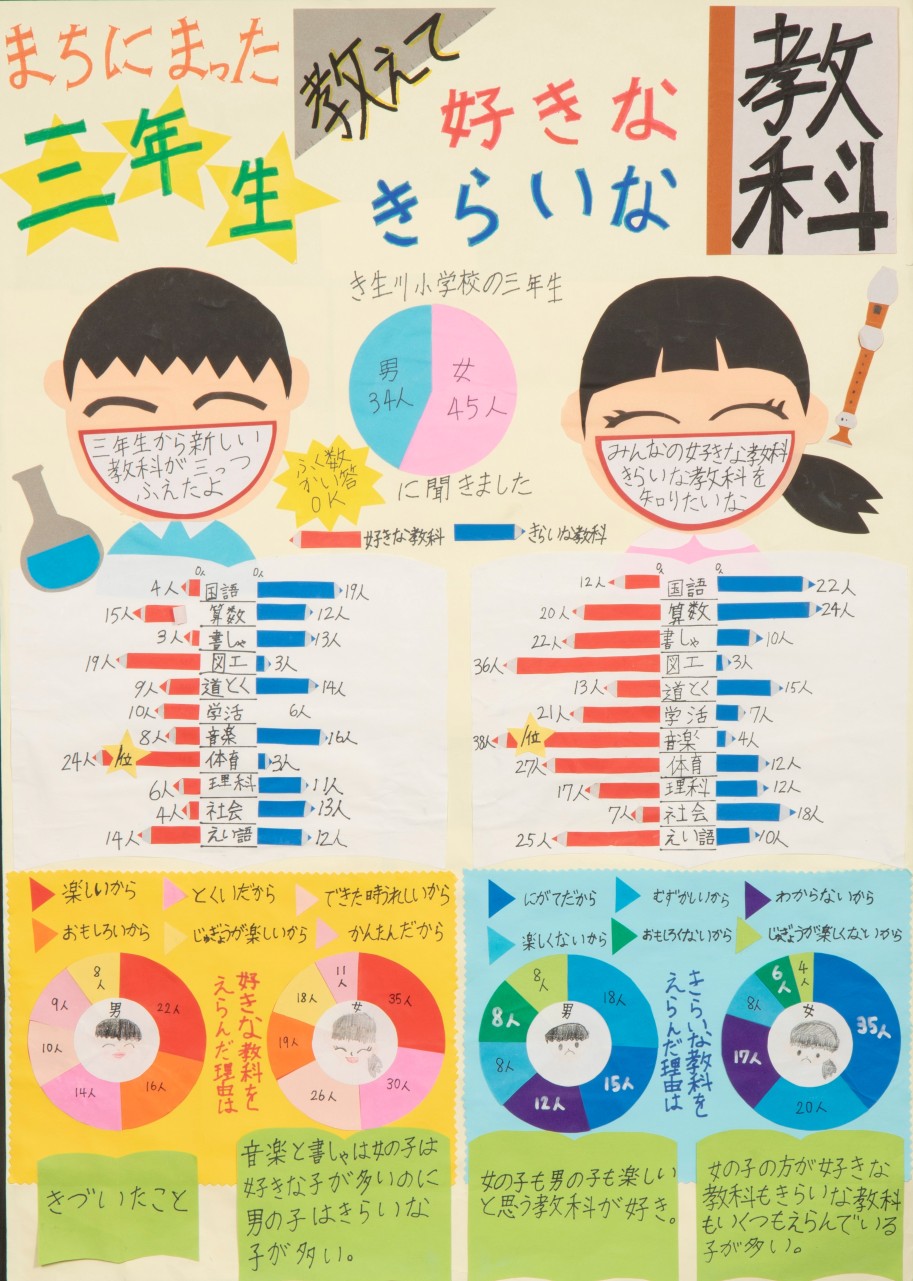 まちにまった
三年生
教えて
好きな
きらいな
教科
き生川小学校の三年生
男
34人
女
45人
三年生から新しい
教科が三っつ
ふえたよ
みんなの好きな教科
きらいな教科を
知りたいな
ふく数
かい答
OK
に聞きました
好きな教科
きらいな教科
0人 0人
4人 国語 19人
15人 算数 12人
3人 書しゃ 13人
19人 図工 3人
9人 道とく 14人
10人 学活 6人
8人 音楽 16人
24人 1位 体育 3人
6人 理科 11人
4人 社会 13人
14人 えい語 12人
0人 0人
12人 国語 22人
20人 算数 24人
22人 書しゃ 10人
36人 図工 3人
13人 道とく 15人
21人 学活 7人
38人 1位 音楽 4人
27人 体育 12人
17人 理科 12人
7人 社会 18人
25人 えい語 10人
楽しいから とくいだから できた時うれしいから
おもしろいから じゅぎょうが楽しいから かんたんだから
男
22人
16人
14人
10人
9人
8人
好きな教科を
えらんだ理由は
女
35人
30人
26人
19人
18人
11人
にがてだから むずかしいから わからないから
楽しくないから おもしろくないから じゅぎょうが楽しくないから
男
18人
15人
12人
8人
8人
8人
きらいな教科を
えらんだ理由は
女
35人
20人
17人
8人
6人
4人
きづいたこと
音楽と書しゃは女の子は
好きな子が多いのに
男の子はきらいな
子が多い。
女の子も男の子も楽しい
と思う教科が好き。
女の子の方が好きな
教科もきらいな教科
もいくつもえらんでいる
子が多い。